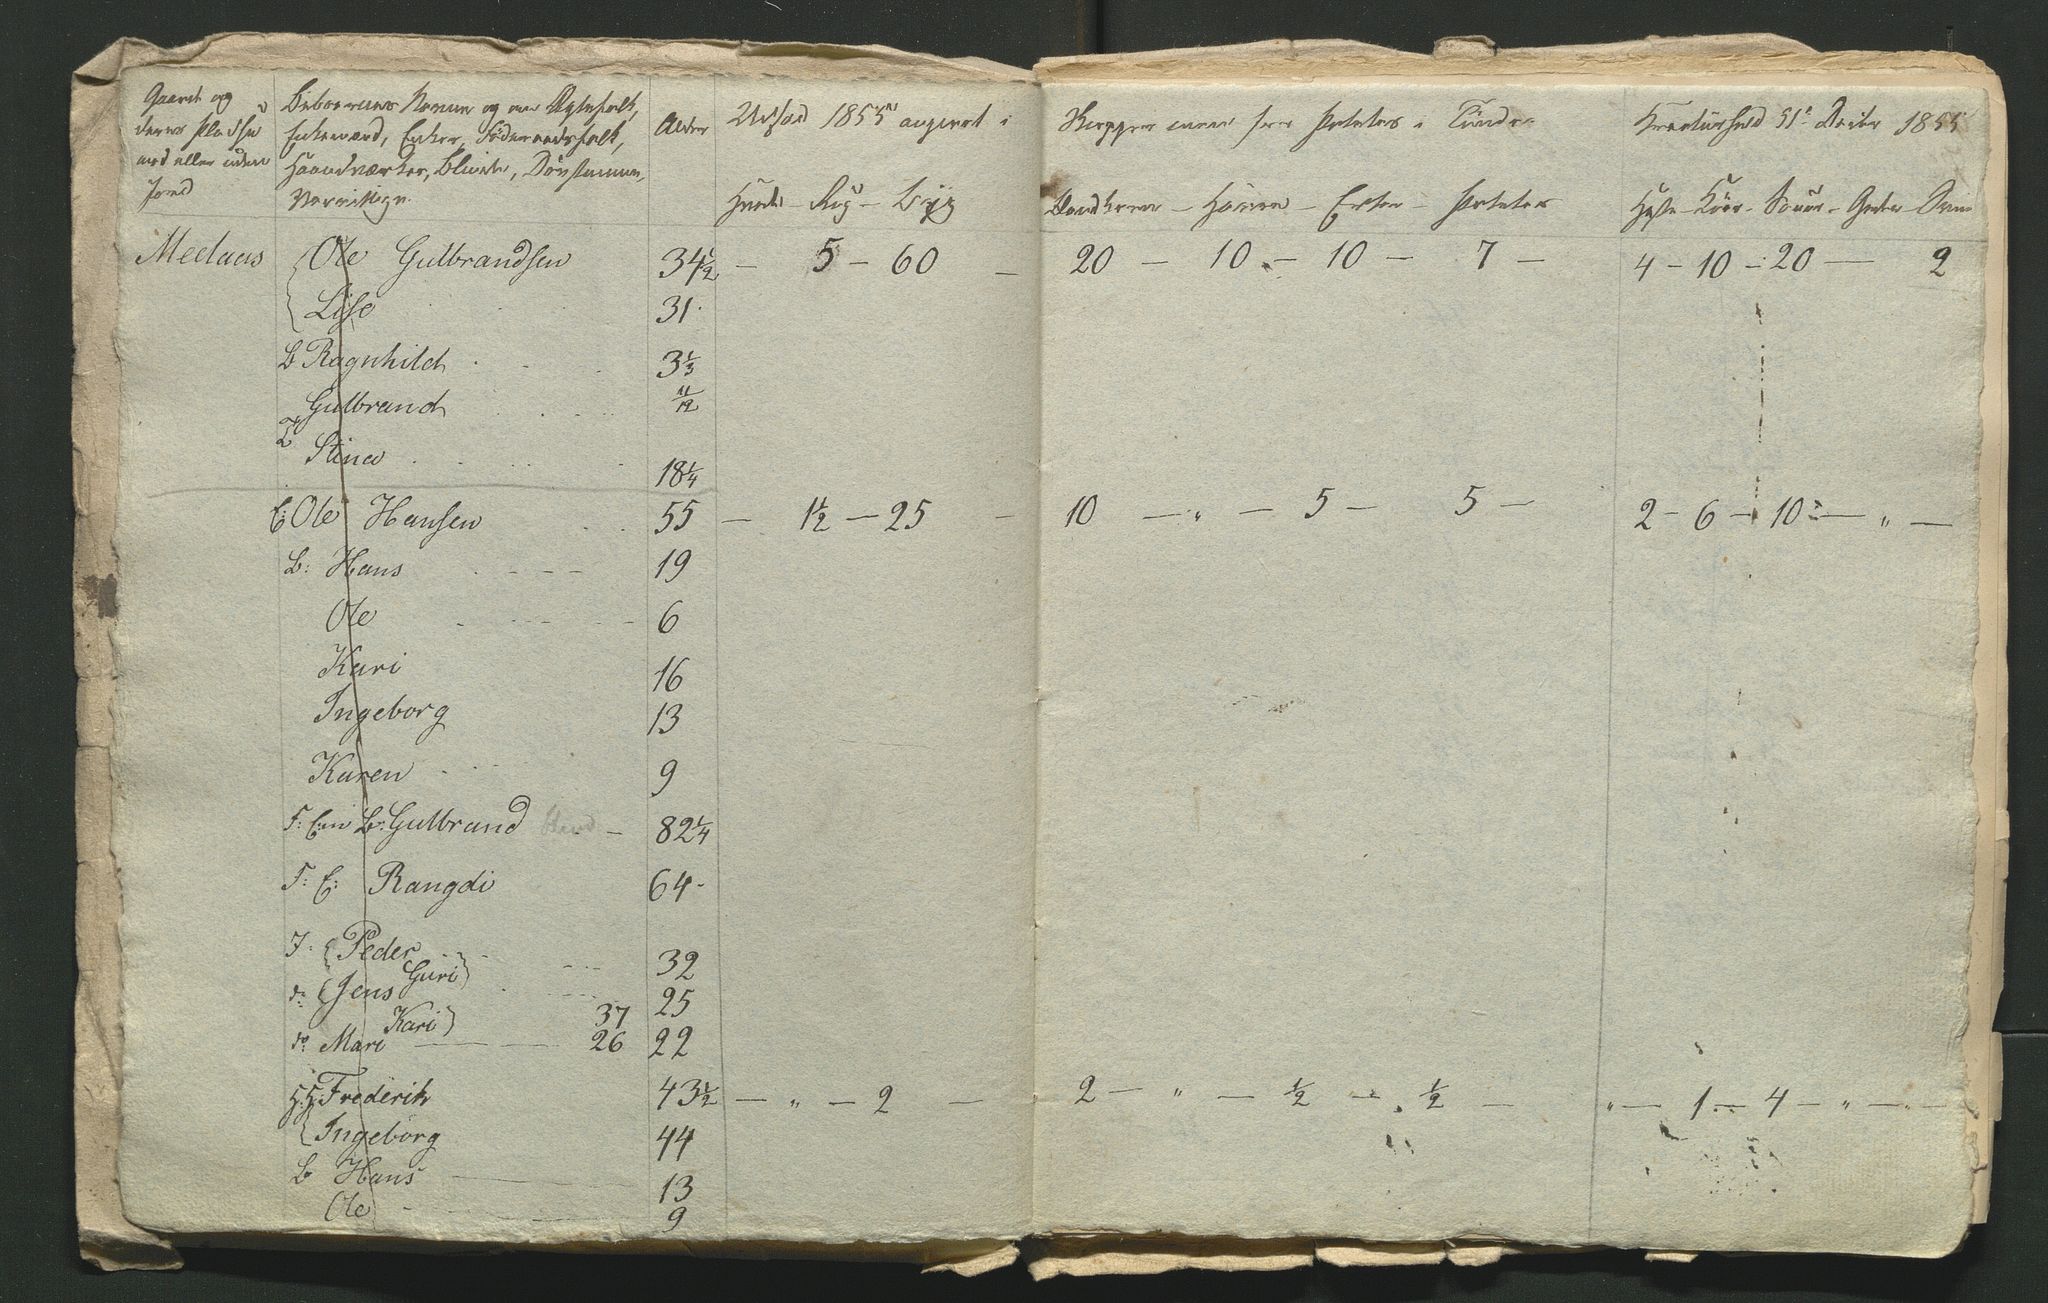 Gaard og
deres Pladse
med eller uden
Jord
Beboernes Navne og om Ægtefolk,
Enkemænd, Enker, Föderaadsfolk,
Haandværker, Blinde, Dövstumme,
Alder
Udsæd 1855 angivet i
Hvede - Rug - Byg
Skjepper men for Potetes i Tönder
Blandkorn - Havre - Erter - Poteter
Kreaturhold 31te Decbr 1855
Heste - Köer - Souer - Geder Sviin
Meelaas Ole Gulbrandsen 34½ — 5 — 60 — 20 — 10 — 10 — 7 — 4 — 10 — 20 — 2
Lise 31
B Ragnhild 3⅓
Gulbrand 11/12
T Stina 18¼
E: Ole Hansen 55 — 1½ — 25 — 10 — „ — 5 — 5 — 2 — 6 — 10 — „ —
B: Hans 19
Ole 6
Kari 16
Ingeborg 13
Karen 9
F: E: Gulbrand 82¼
F: E: Rangdi 64
J: Peder 32
Guri
do Jens 25
Kari 37
do Mari 26 22
H:H: Frederik 43½ — „ — 2 — 2 — „ — ½ — ½ — „ — 1 — 4 — „ — „ —
Ingeborg 44
B Hans 13
Ole 9